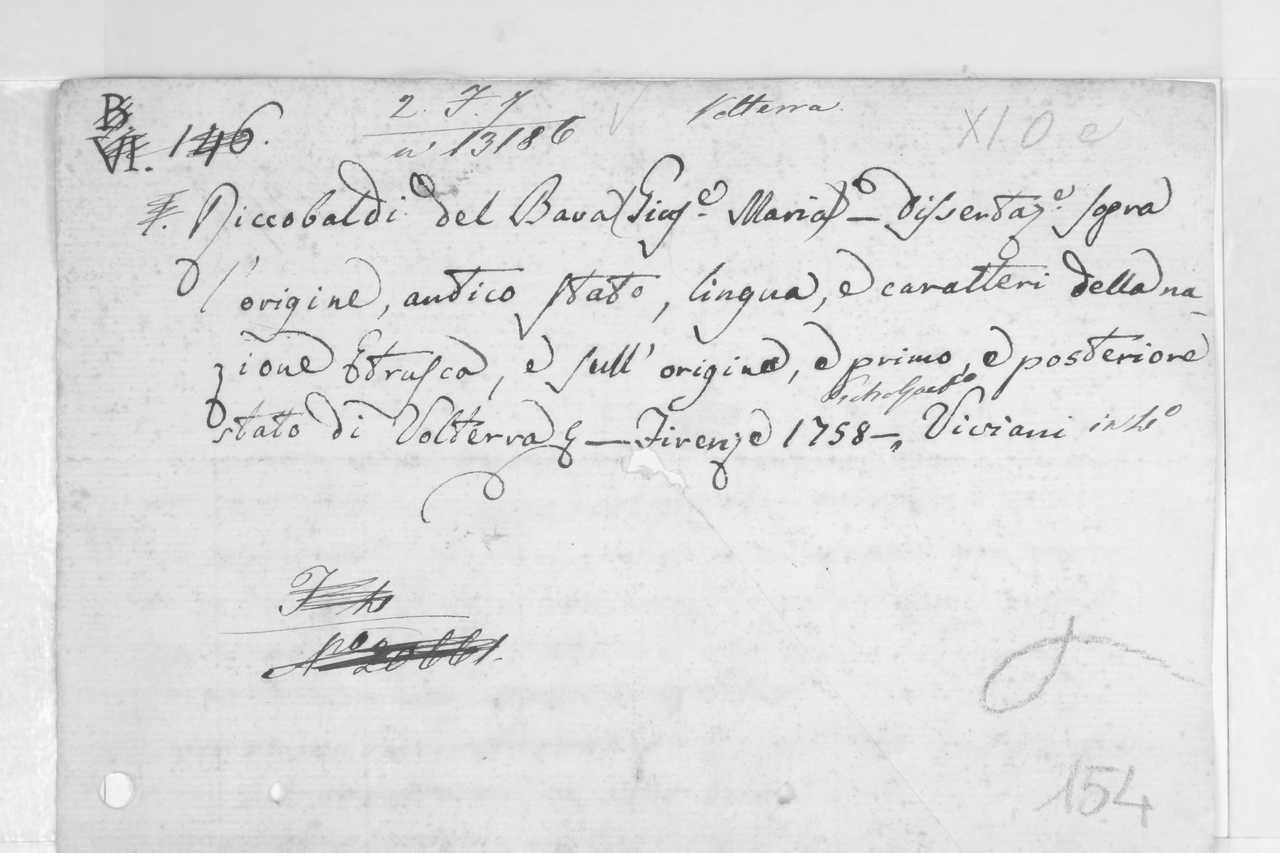 B
VI. 146.
2. F. 7
n° 13186
Volterra.
XI. O e
Riccobaldi del Bava (Gius.e Maria) — Dissertaz.e sopra
l'origine, antico stato, lingua, e caratteri della na-
zione Etrusca, e sull' origine, e primo, e posteriore
stato di Volterra & — Firenze 1758 — Viviani in 4.o
N° 20661.
154